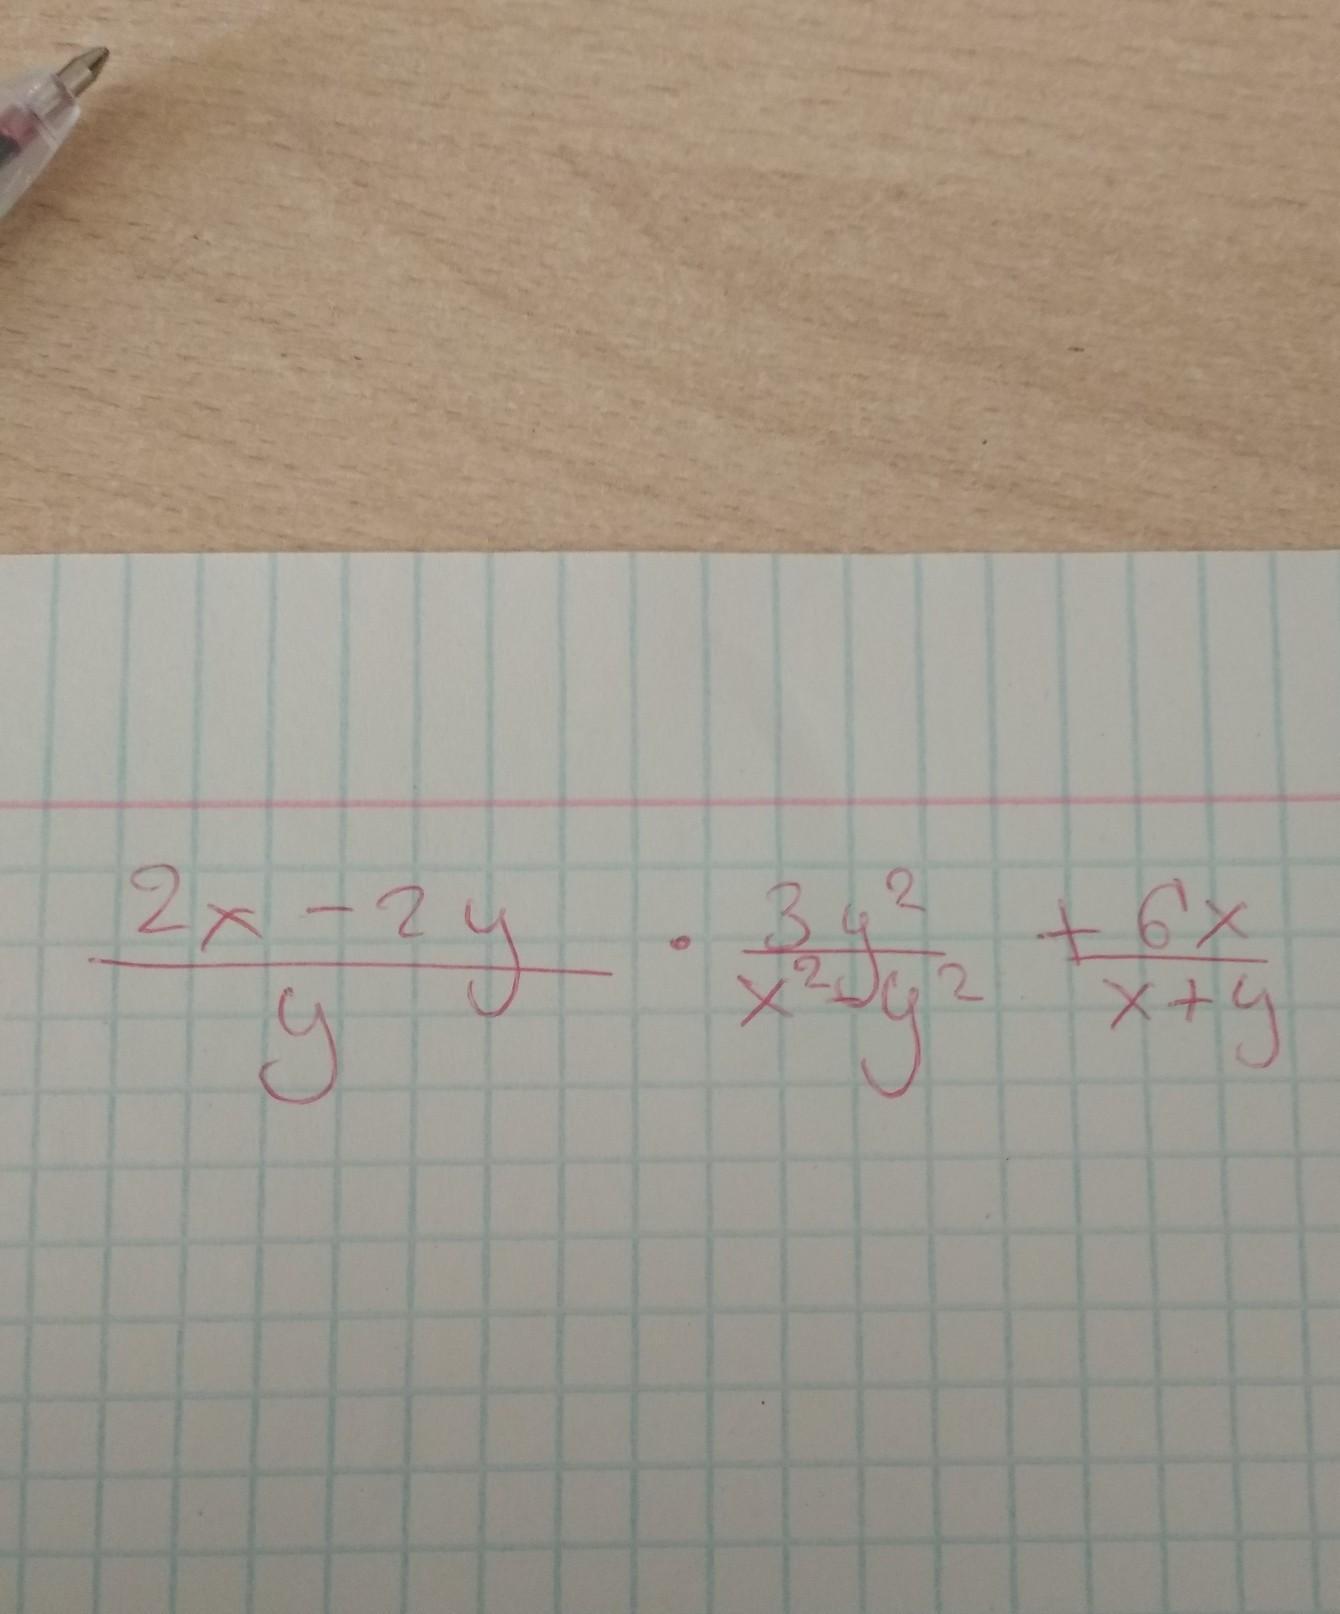 \frac{2x - 2y}{y} \cdot \frac{3y^2}{x^2 - y^2} + \frac{6x}{x + y}